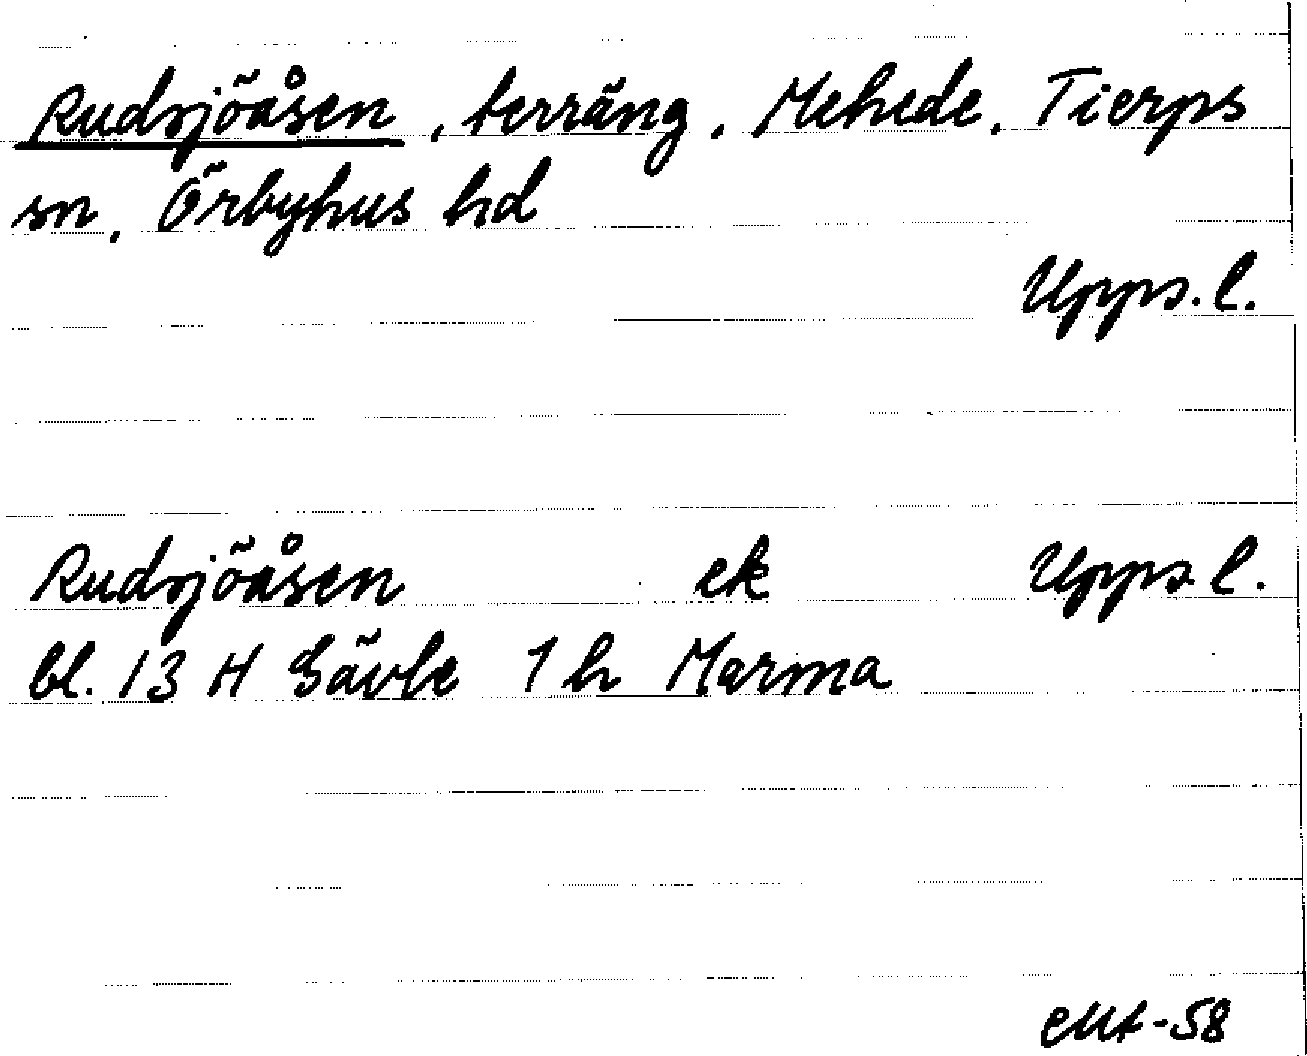 Rudsjöåsen, terräng, Mehede, Tierps
sn, Örbyhus hd
Upps. l.
Rudsjöåsen ek Upps. l.
bl. 13 H Gävle 1 h Marma
-58